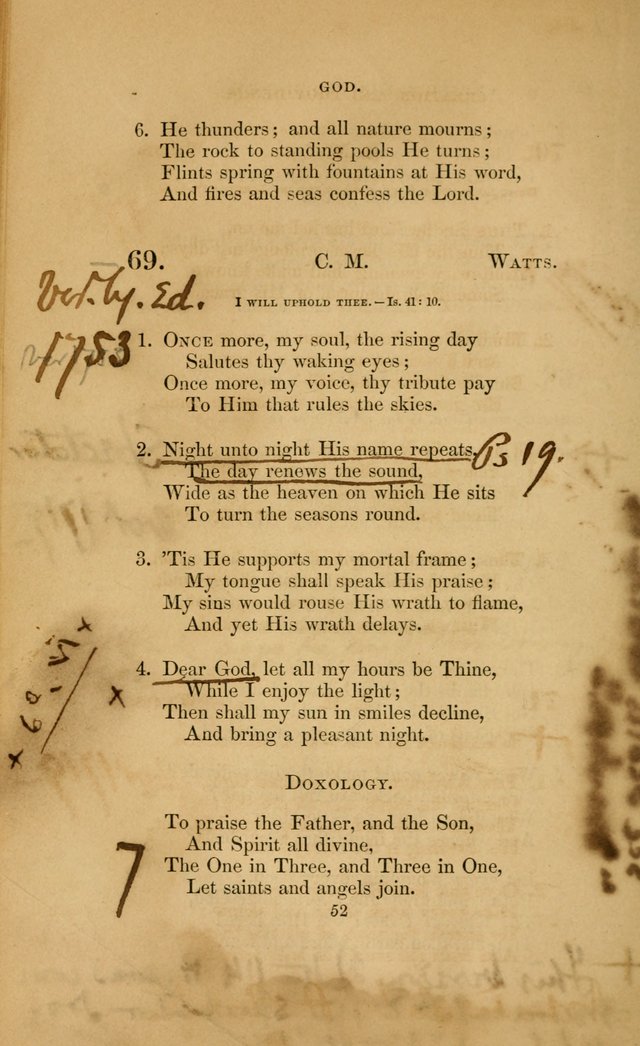 GOD.
6. He thunders; and all nature mourns;
The rock to standing pools He turns;
Flints spring with fountains at His word,
And fires and seas confess the Lord.
69. C. M. WATTS.
Ver. by. Ed.
1753
I WILL UPHOLD THEE.—Is. 41: 10.
1. ONCE more, my soul, the rising day
Salutes thy waking eyes;
Once more, my voice, thy tribute pay
To Him that rules the skies.
2. Night unto night His name repeats, Ps 19.
The day renews the sound,
Wide as the heaven on which He sits
To turn the seasons round.
3. 'Tis He supports my mortal frame;
My tongue shall speak His praise;
My sins would rouse His wrath to flame,
And yet His wrath delays.
4. Dear God, let all my hours be Thine,
x While I enjoy the light;
Then shall my sun in smiles decline,
And bring a pleasant night.
DOXOLOGY.
To praise the Father, and the Son,
And Spirit all divine,
7
The One in Three, and Three in One,
Let saints and angels join.
52